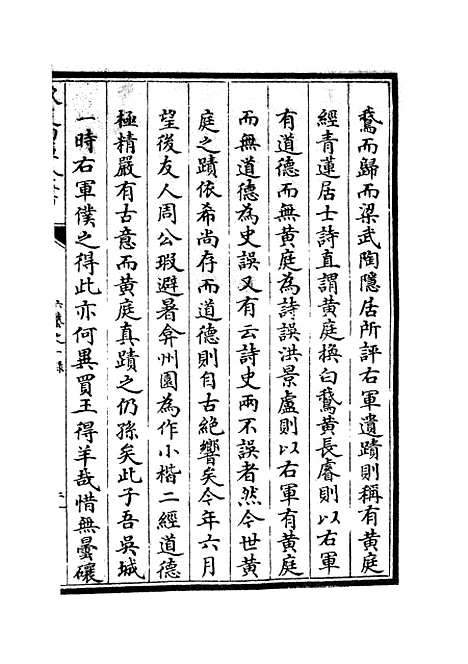 鵞而歸而梁武陶隱居所評右軍遺蹟則稱有黄庭
經青蓮居士詩直謂黄庭換白鵞黄長睿則以右軍
有道德而無黄庭為詩誤洪景盧則以右軍有黄庭
而無道德為史誤又有云詩史兩不誤者然今世黄
庭之蹟依希尚存而道德則自古絶響矣今年六月
望後友人周公瑕避暑弇州園為作小楷二經道德
極精嚴有古意而黄庭真蹟之仍孫矣此子吾吳城
一時右軍僕之得此亦何異買王得羊哉惜無曇礦